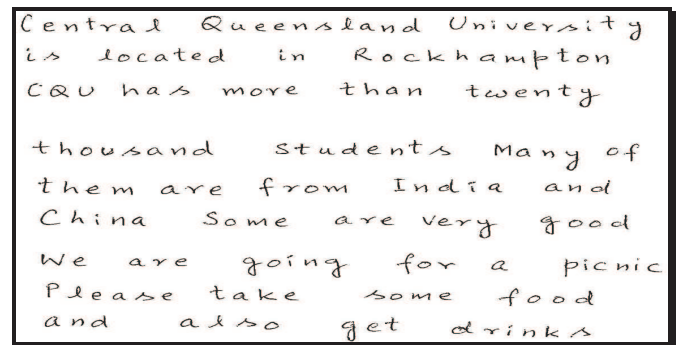 Central Queensland University
is located in Rockhampton
CQU has more than twenty
thousand students Many of
them are from India and
China Some are very good
We are going for a picnic
Please take some food
and also get drinks